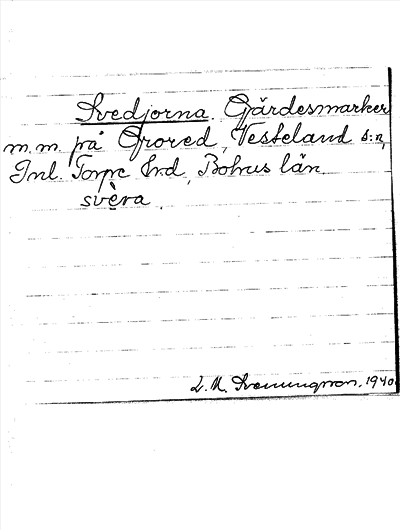 Svedjorna. Gärdesmarker
m.m. på Grored, Vesteland s:n,
Inl. Torpe hd, Bohus län.
svèra.
L. M. Svenungsson, 1940